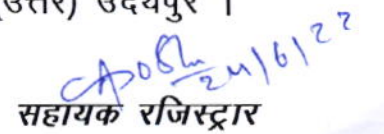 (उत्तर) उदयपुर ।
24/6/22
सहायक रजिस्ट्रार